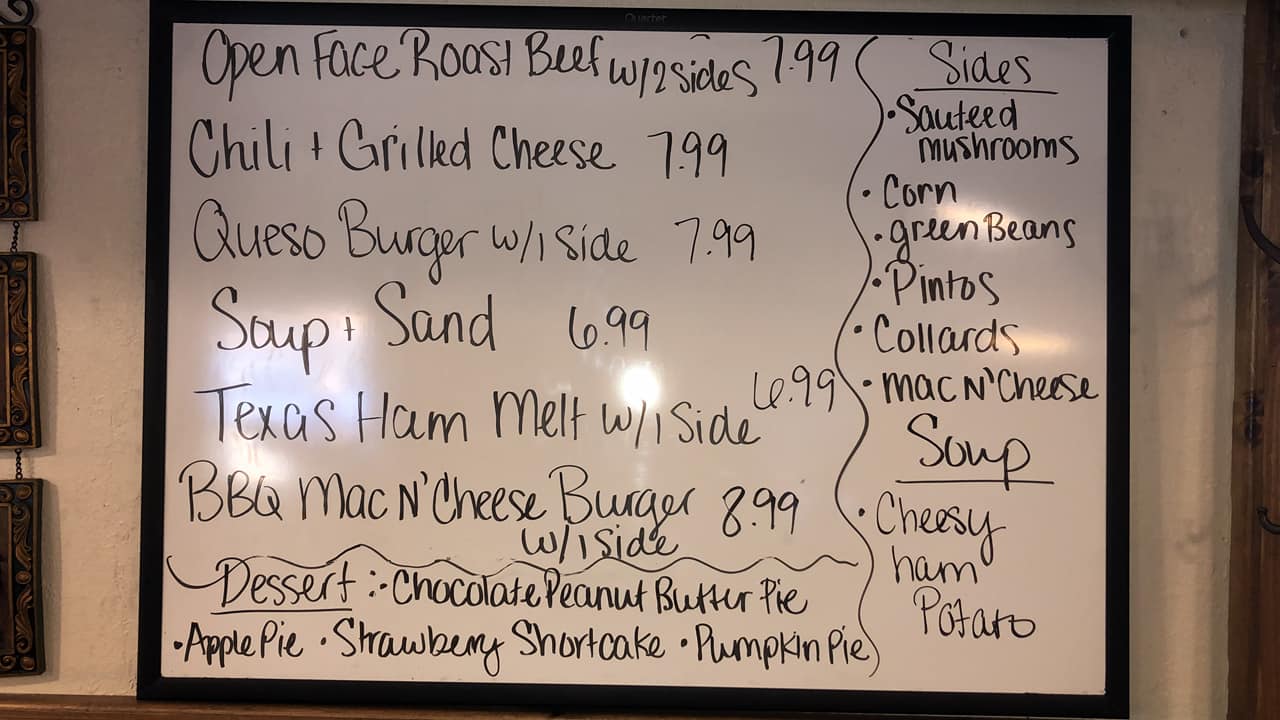 Quartet
Open Face Roast Beef w/2 sides 7.99
Chili + Grilled Cheese 7.99
Queso Burger w/1 Side 7.99
Soup + Sand 6.99
Texas Ham Melt w/1 Side 6.99
BBQ Mac N' Cheese Burger 8.99
w/1 Side
Dessert: · Chocolate Peanut Butter Pie
· Apple Pie · Strawberry Shortcake · Pumpkin Pie
Sides
· Sauteed
mushrooms
· Corn
· green Beans
· Pintos
· Collards
· mac N' Cheese
Soup
· Cheesy
ham
Potato